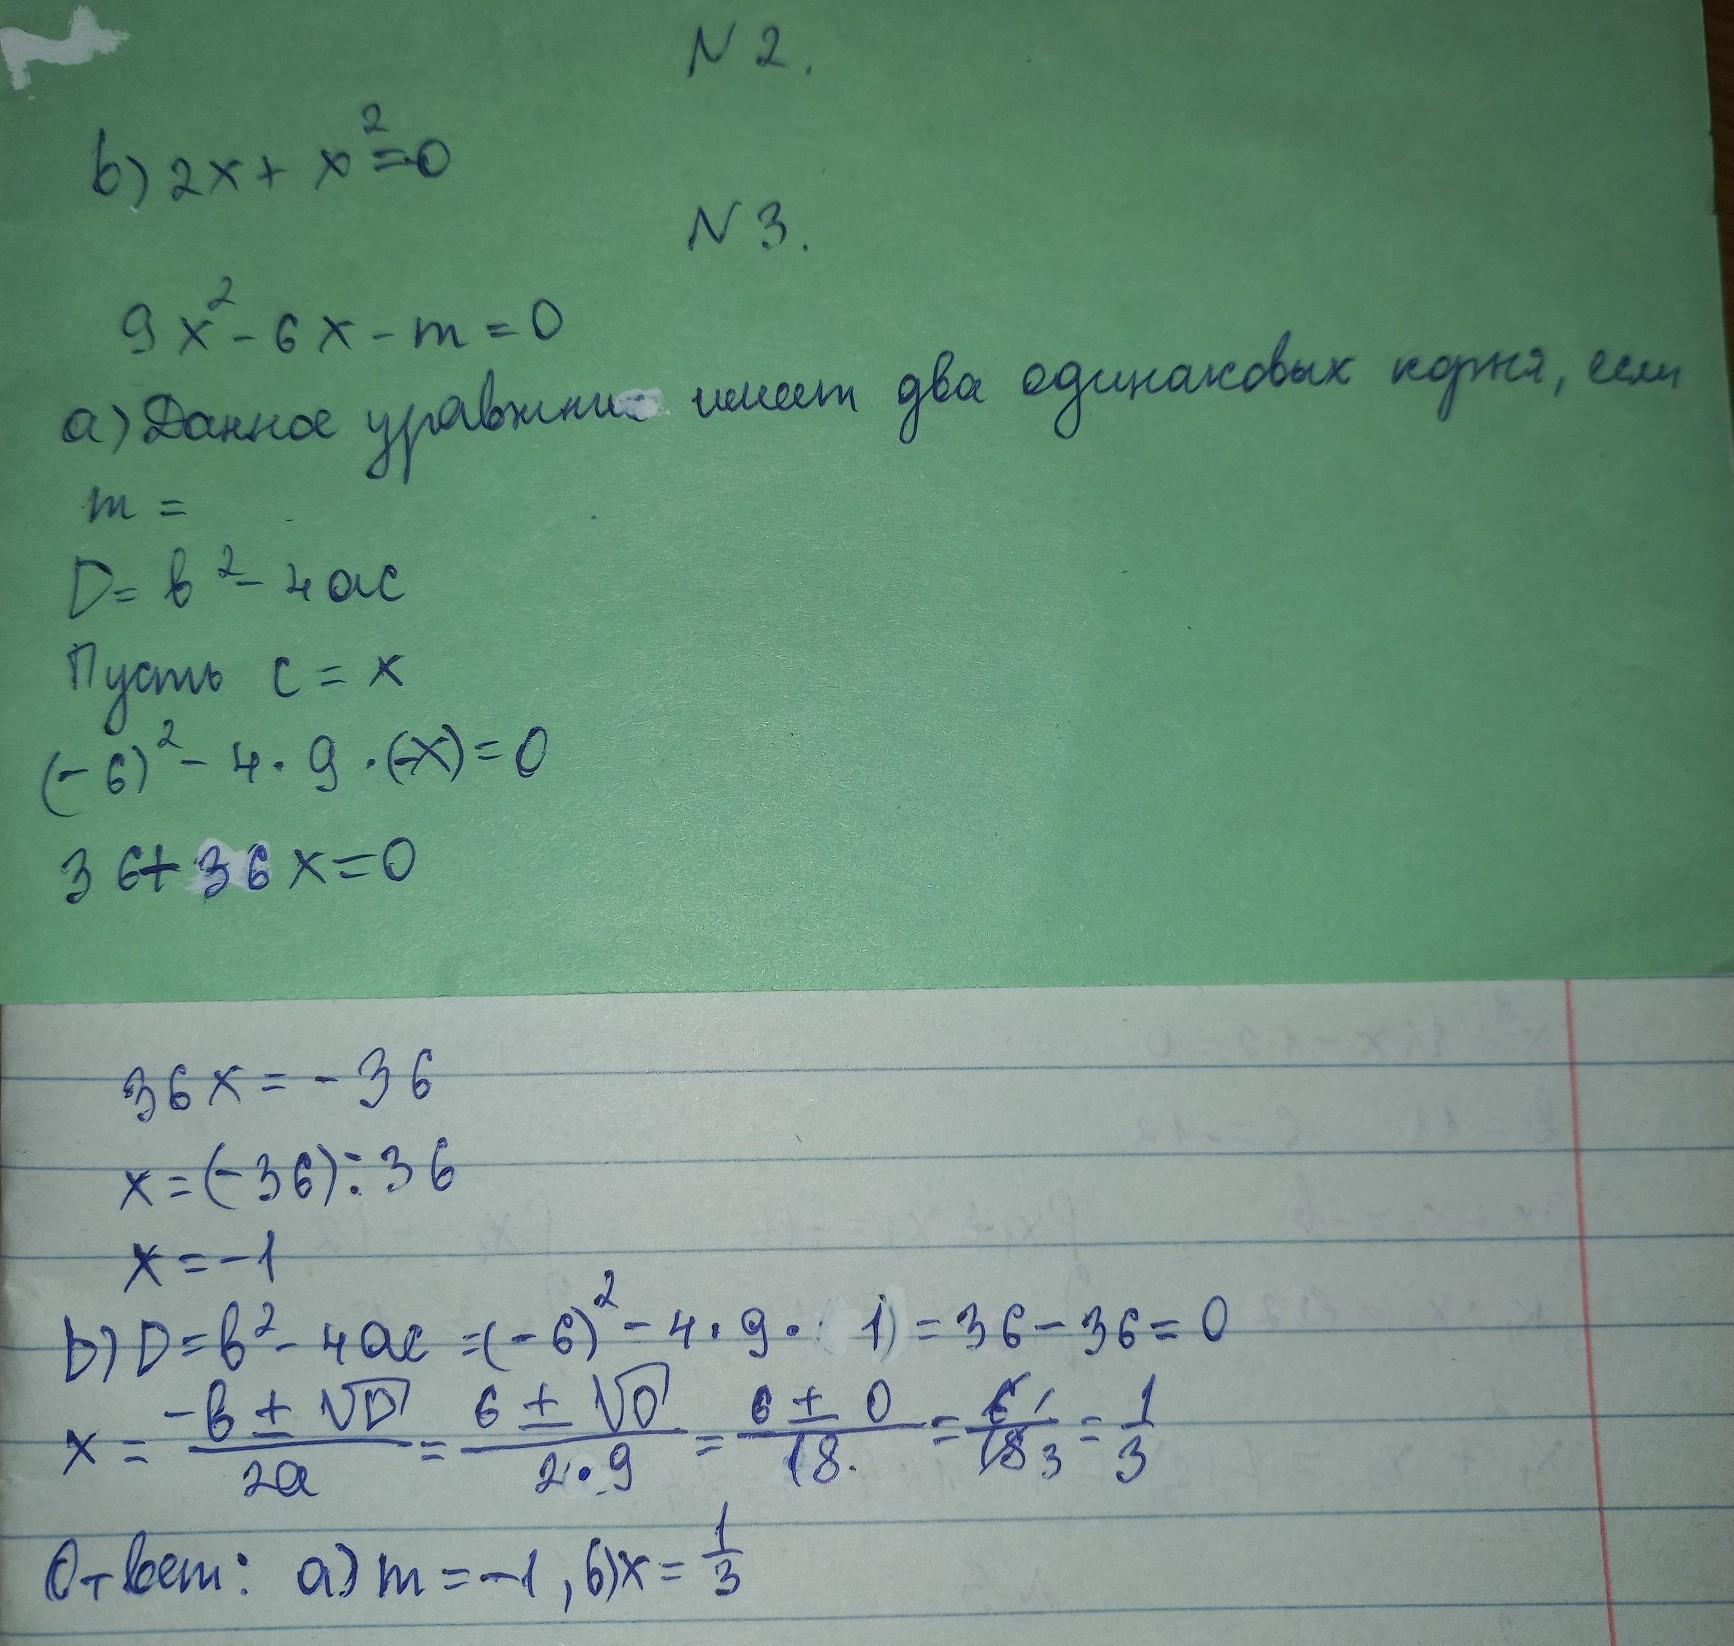 N 2.
b) 2x + x² = 0
N 3.
9x² - 6x - m = 0
a) Данное уравнение имеет два одинаковых корня, если
m =
D = b² - 4ac
Пусть c = x
(-6)² - 4 · 9 · (-x) = 0
36 + 36x = 0
36x = -36
x = (-36) : 36
x = -1
b) D = b² - 4ac = (-6)² - 4 · 9 · 1) = 36 - 36 = 0
x = (-b ± √D)/2a = (6 ± √0)/(2 · 9) = (6 ± 0)/18 = 6/18 = 1/3
Ответ: a) m = -1, b) x = 1/3